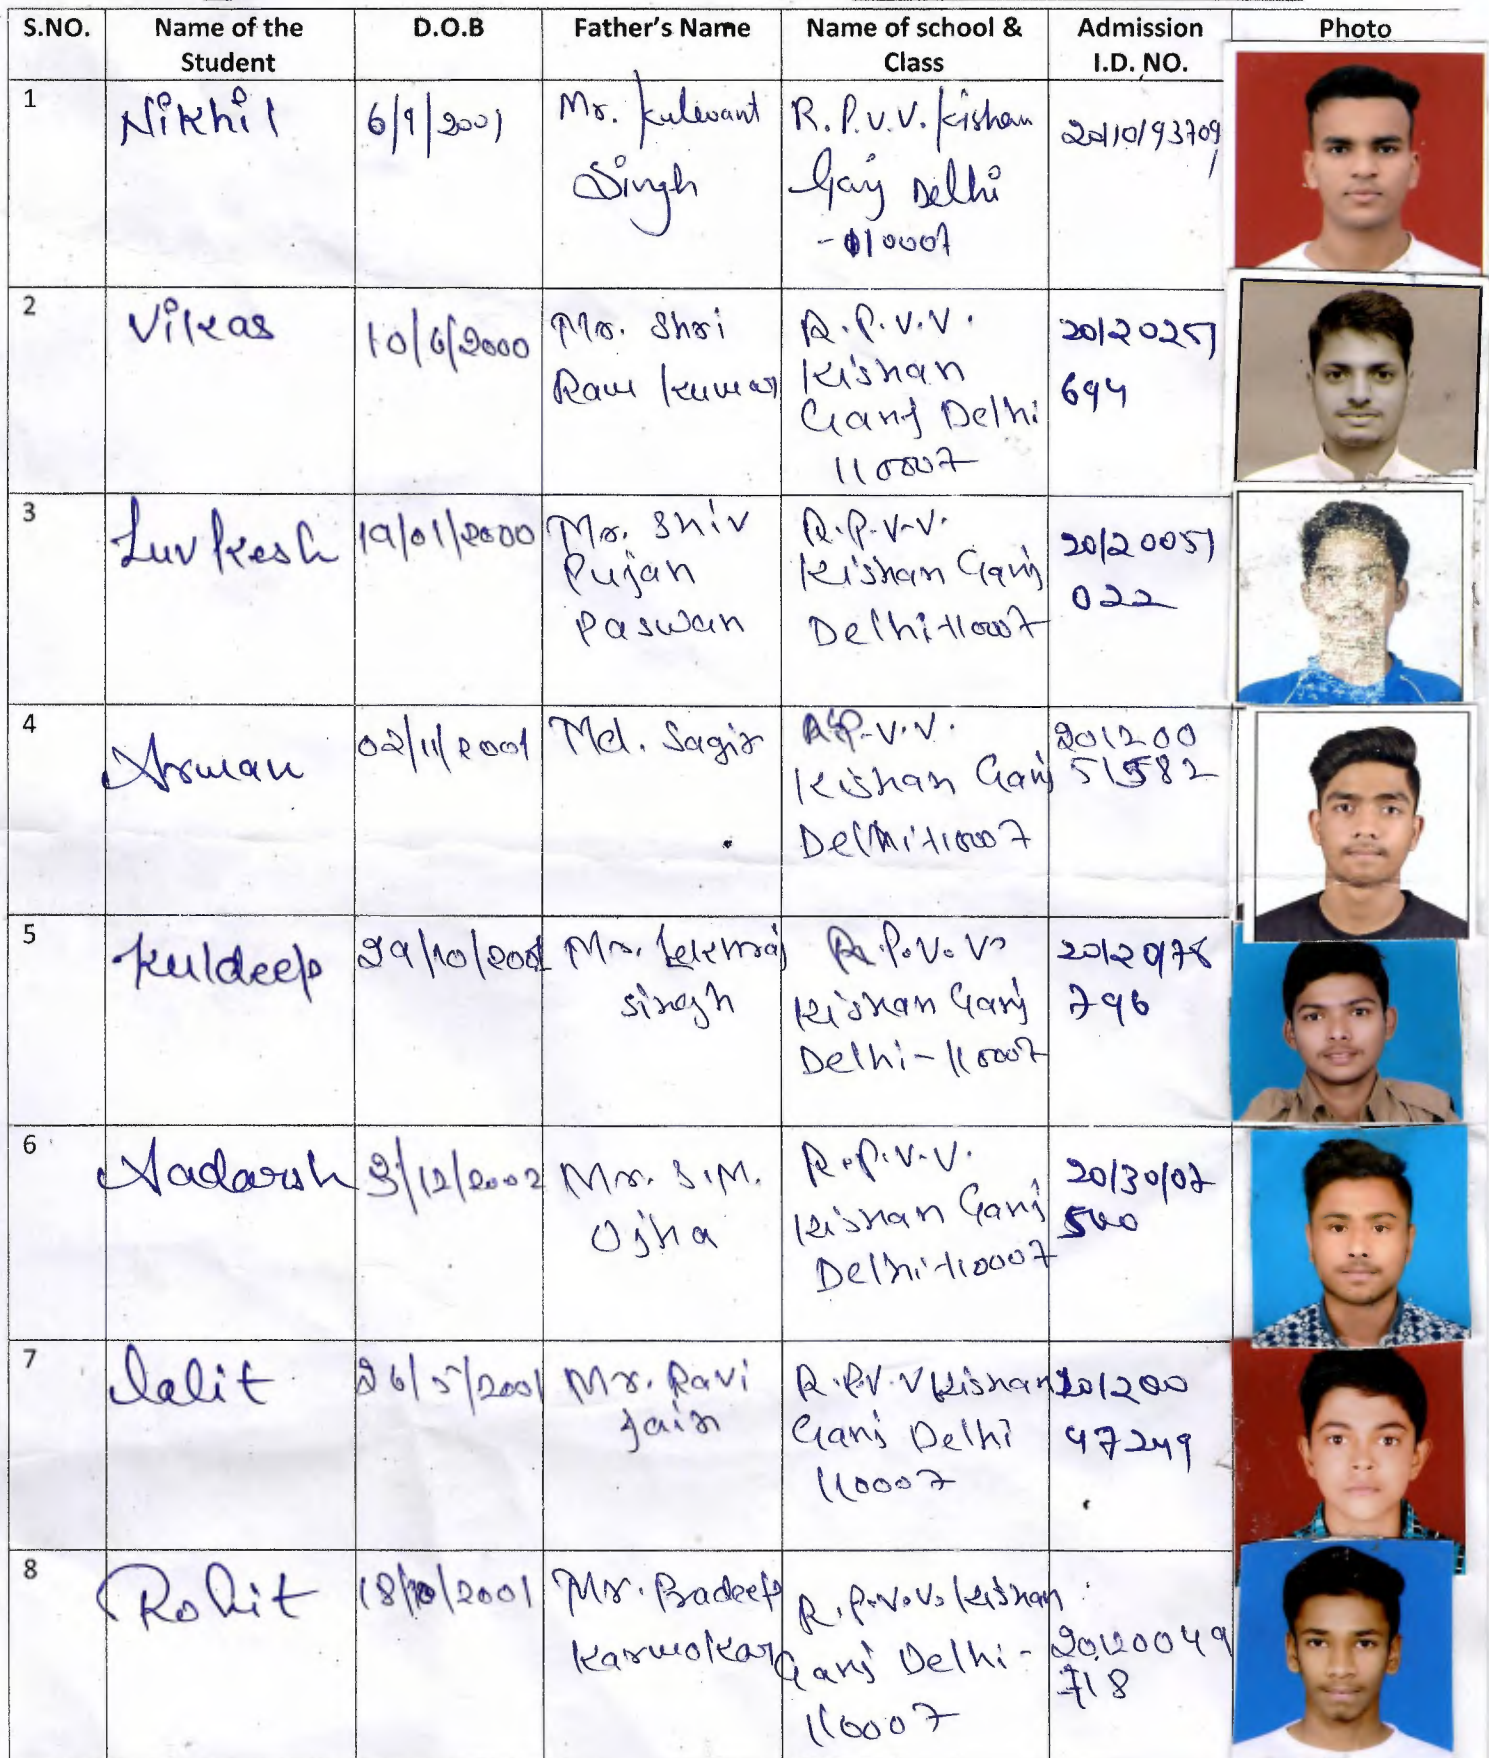 S.NO. Name of the Student D.O.B Father's Name Name of school & Class Admission I.D. NO. Photo
1 Nikhil 6/9/2001 Mr. Kulwant Singh R.P.V.V. Kishan Ganj Delhi -110007
2 Vikas 10/6/2000 Mr. Shri Ram Kumar R.P.V.V. Kishan Ganj Delhi 110007 20120251 694
3 Luv Kesh 19/01/2000 Mr. Shiv Pujan Paswan R.P.V.V. Kishan Ganj Delhi-110007 20120051 022
4 Arman 02/11/2001 Md. Sagir R.P.V.V. Kishan Ganj Delhi-110007 201200 51582
5 Kuldeep 29/10/2001 Mr. Lekhraj Singh R.P.V.V. Kishan Ganj Delhi-110007 796
6 Aadarsh /12/2002 Mr. S.M. Ojha R.P.V.V. Kishan Ganj Delhi-110007
7 Lalit 26/5/2001 Mr. Ravi Jain R.P.V.V Kishan Ganj Delhi 110007 201200 47249
8 Rohit 18/10/2001 Mr. Pradeep Karmokar R.P.V.V. Kishan Ganj Delhi- 110007 20120049 718